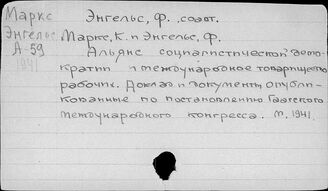 Маркс Энгельс, Ф., соавт.
Энгельс Маркс, К. и Энгельс, Ф.
А-59 Альянс социалистической демо-
1941 кратии и международное товарищество
рабочих. Доклад и документы опубли-
кованные по постановлению Гаагского
международного конгресса. М., 1941.